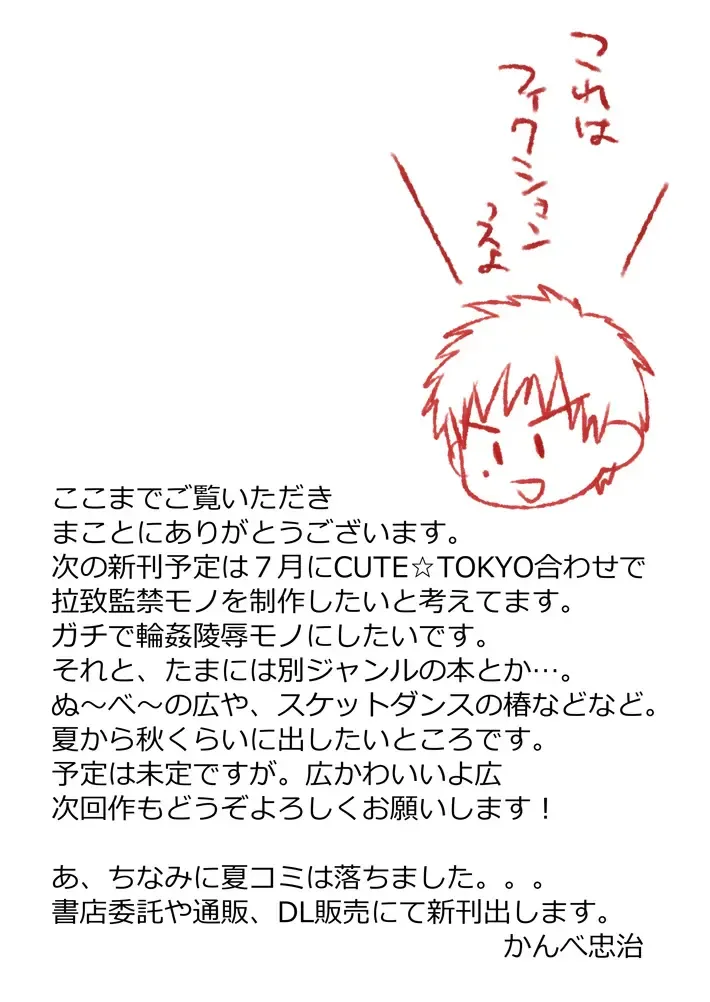 これは
フィクション
っスよ
ここまでご覧いただき
まことにありがとうございます。
次の新刊予定は７月にCUTE☆TOKYO合わせで
拉致監禁モノを制作したいと考えてます。
ガチで輪姦陵辱モノにしたいです。
それと、たまには別ジャンルの本とか…。
ぬ～べ～の広や、スケットダンスの椿などなど。
夏から秋くらいに出したいところです。
予定は未定ですが。広かわいいよ広
次回作もどうぞよろしくお願いします！
あ、ちなみに夏コミは落ちました。。。
書店委託や通販、DL販売にて新刊出します。
かんべ忠治